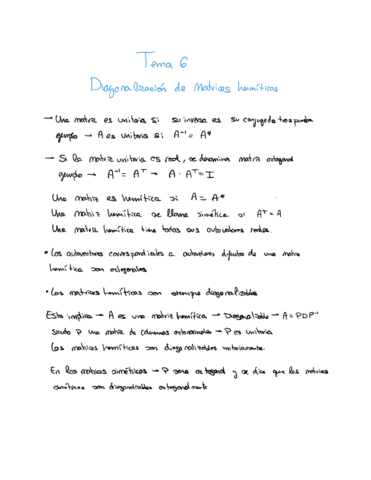 Tema 6
Diagonalización de Matrices hermíticas
→ Una matriz es unitaria si su inversa es su conjugada traspuesta
ejemplo → A es unitaria si A⁻¹ = A*
→ Si la matriz unitaria es real, se denomina matriz ortogonal
ejemplo → A⁻¹ = Aᵀ → A · Aᵀ = I
Una matriz es hermítica si A = A*
Una matriz hermítica se llama simética si Aᵀ = A
Una matriz hermítica tiene todos sus autovalores reales.
• Los autovectores correspondientes a autovalores distintos de una matriz
hermítica son ortogonales
• Las matrices hermíticas son siempre diagonalizables
Esto implica → A es una matriz hermítica → Diagonalizable → A = PDP⁻¹
siendo P una matriz de columnas ortonormales → P es unitaria
Las matrices hermíticas son diagonalizables unitariamente.
En las matrices simétricas → P sera ortogonal y se dice que las matrices
simétricas son diagonalizables ortogonalmente